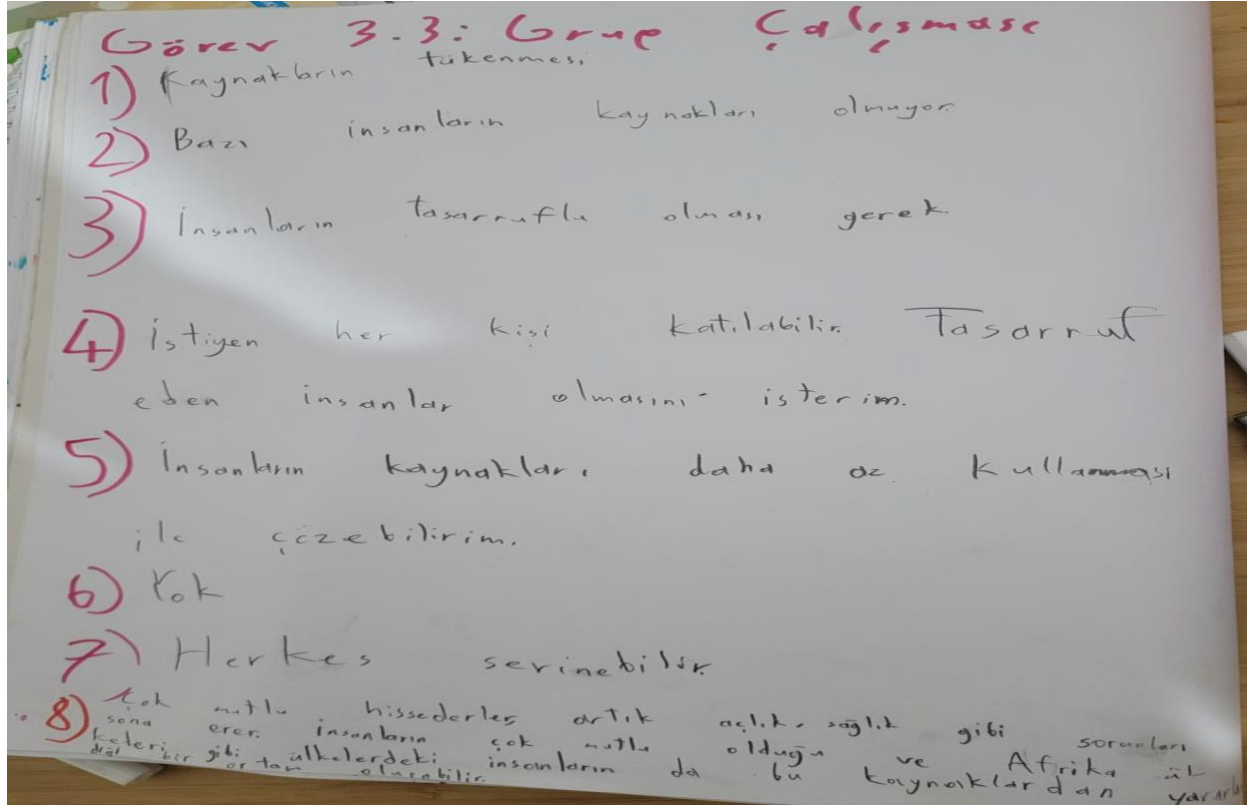 Görev 3.3: Grup Çalışması
1) Kaynakların tükenmesi
2) Bazı insanların kaynakları olmuyor.
3) İnsanların tasarruflu olması gerek.
4) İstiyen her kişi katılabilir. Tasarruf
eden insanlar olmasını isterim.
5) İnsanların kaynakları daha az kullanması
ile çözebilirim.
6) Yok
7) Herkes sevinebilir.
8) Çok mutlu hissederler artık açlık, sağlık gibi sorunları
sona erer. İnsanların çok mutlu olduğu ve Afrika ül
keleri gibi ülkelerdeki insanların da bu kaynaklardan yararla
bir ortam oluşabilir.